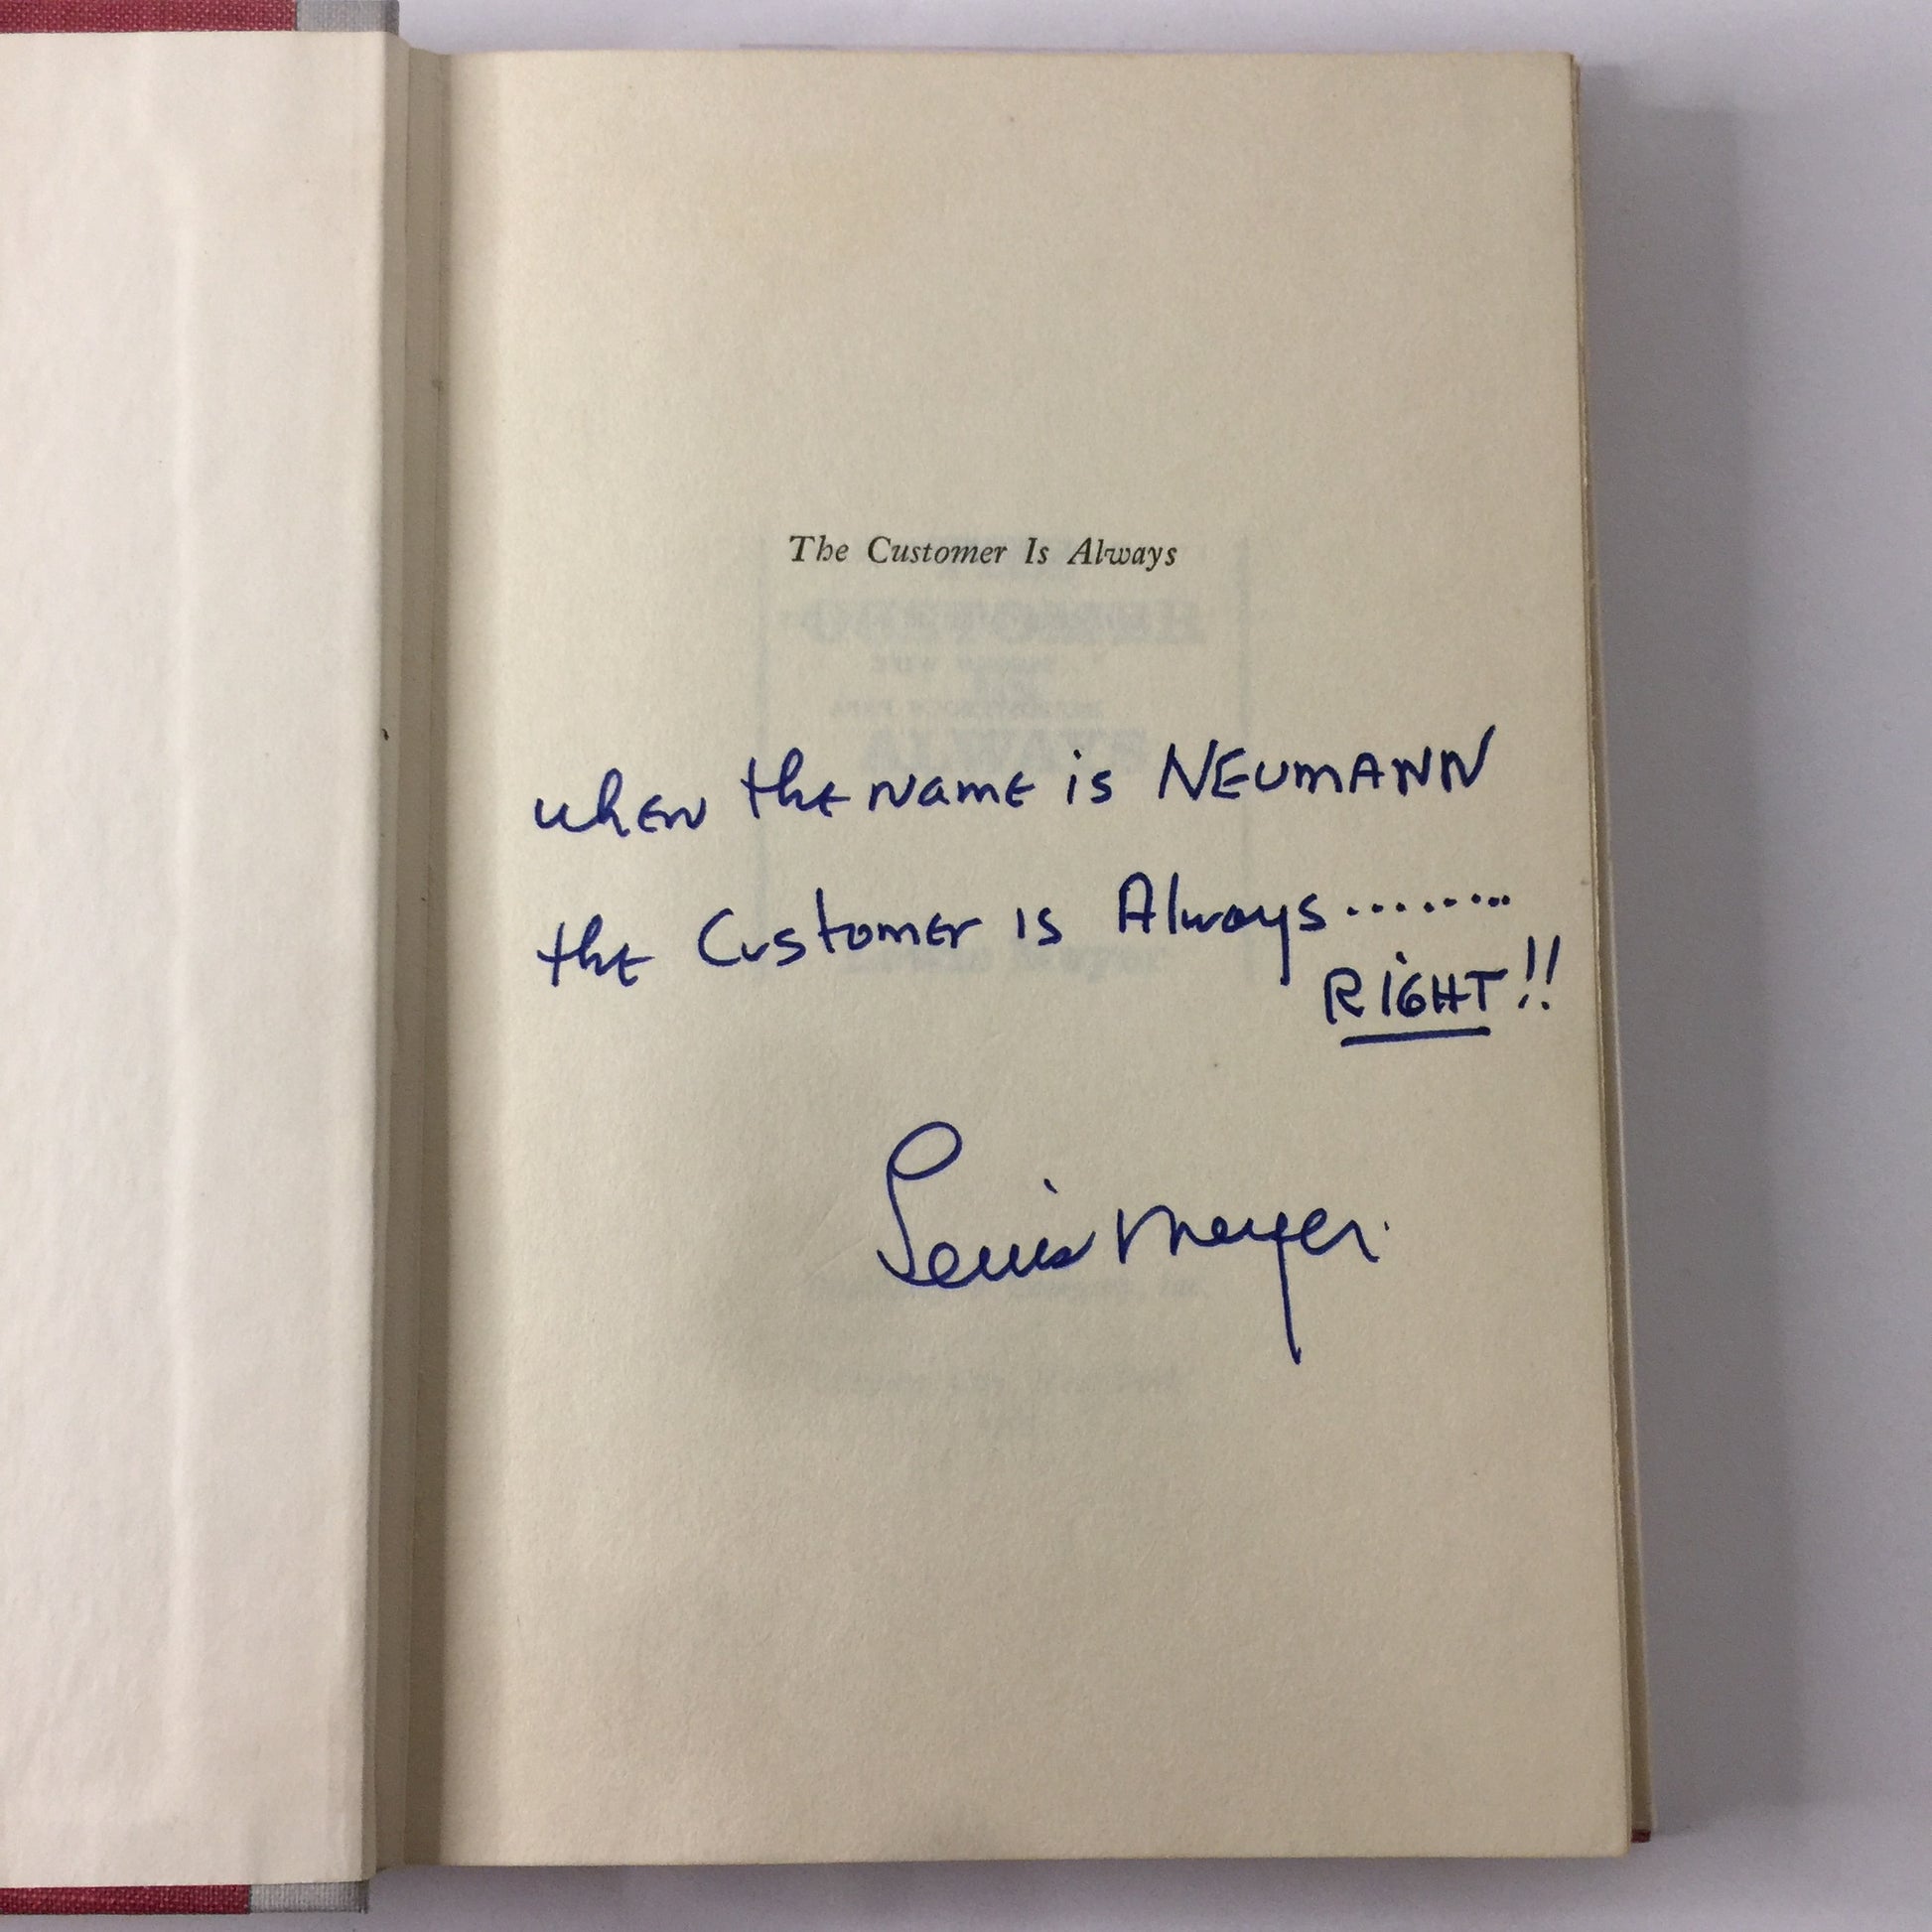 The Customer Is Always
when the name is NEUMANN
the Customer is Always.........
RiGHT!!
Lewis Meyer.